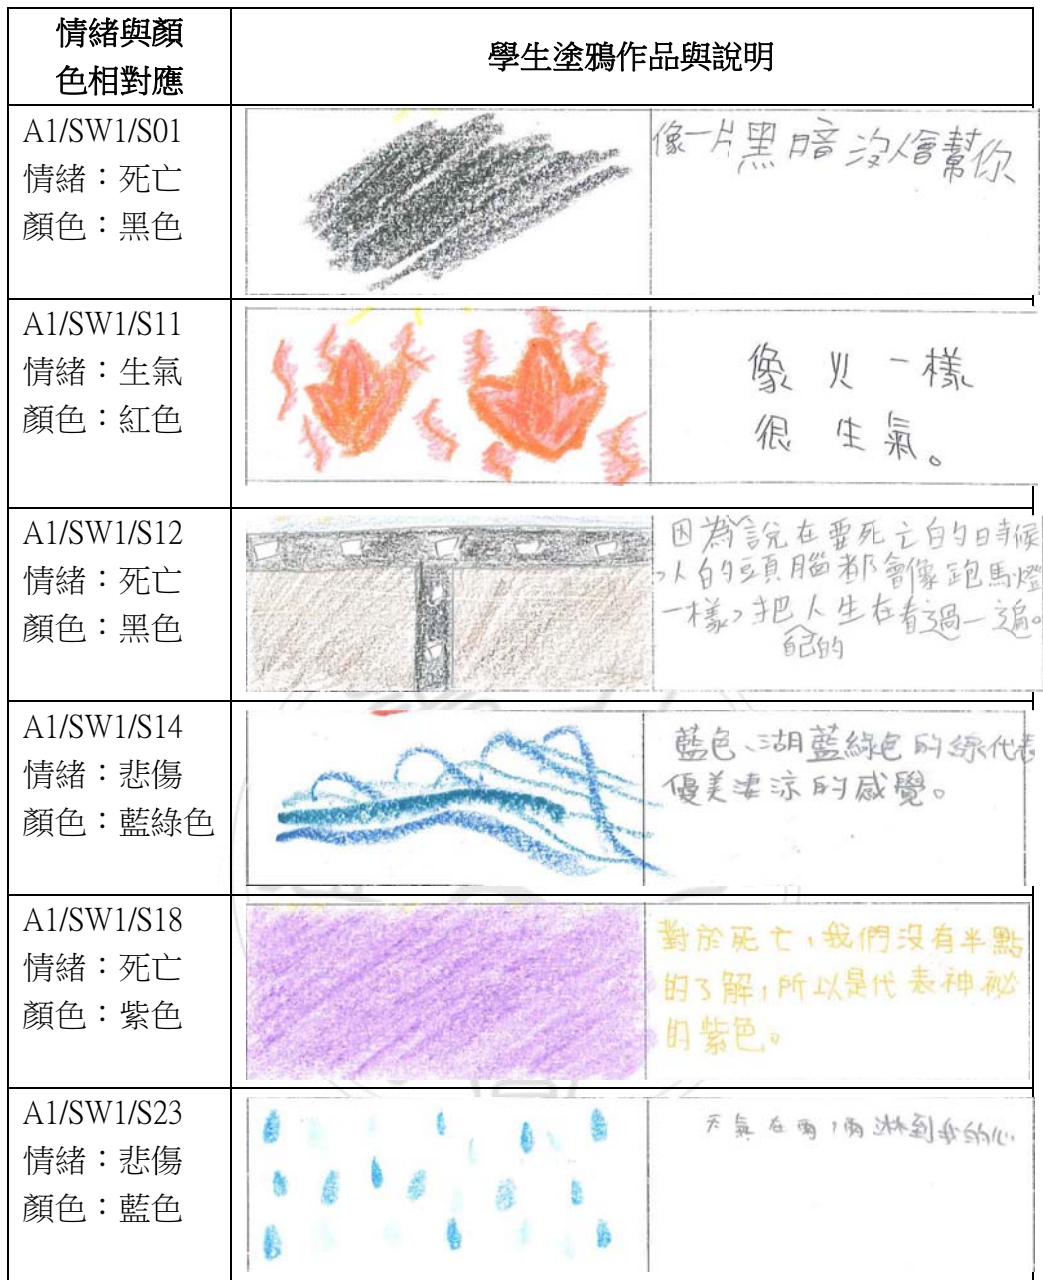 情緒與顏
色相對應
學生塗鴉作品與說明
A1/SW1/S01
情緒：死亡
顏色：黑色
像一片黑暗沒人會幫你
A1/SW1/S11
情緒：生氣
顏色：紅色
像火一樣
很生氣。
A1/SW1/S12
情緒：死亡
顏色：黑色
因為說在要死亡的時候
，人的頭腦都會像跑馬燈
一樣，把人生在看過一遍。
自己的
A1/SW1/S14
情緒：悲傷
顏色：藍綠色
藍色、湖藍綠色的線代表
優美淒涼的感覺。
A1/SW1/S18
情緒：死亡
顏色：紫色
對於死亡，我們沒有半點
的了解，所以是代表神祕
的紫色。
A1/SW1/S23
情緒：悲傷
顏色：藍色
天氣在雨，雨淋到我的心